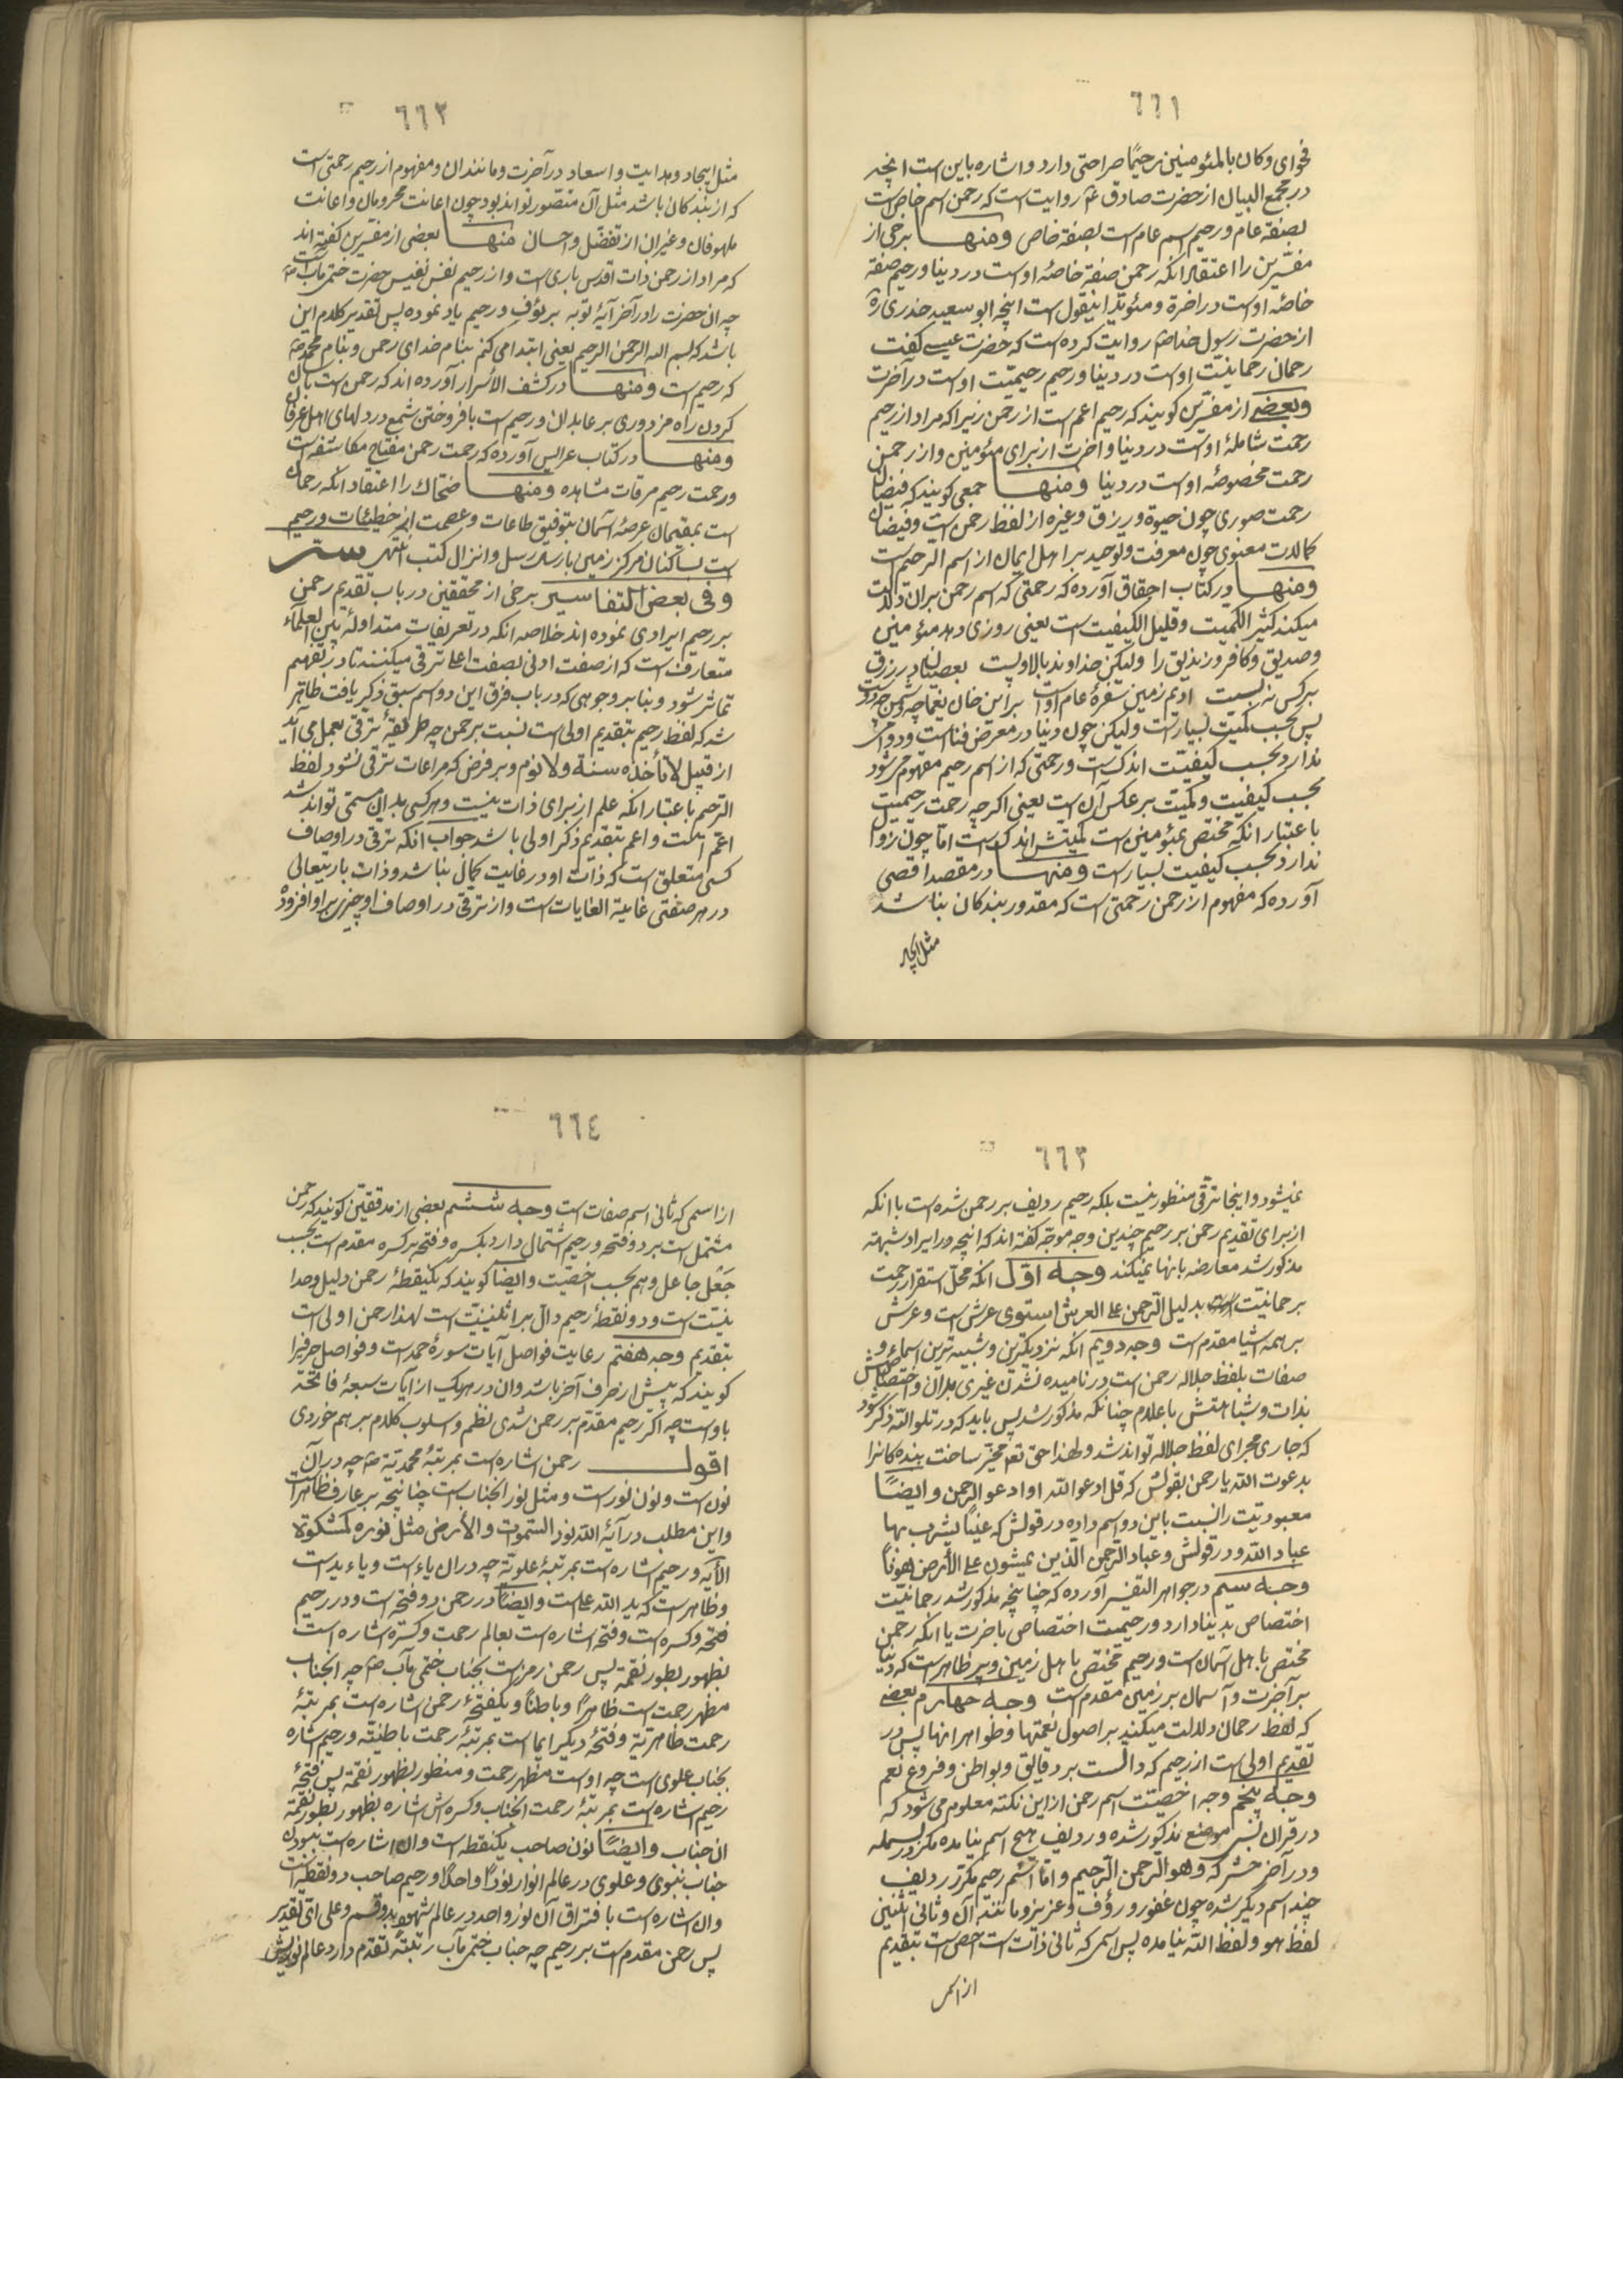 ٦٦١
فحوای وکان بالمئومنین رحیمًا صراحتی دارد واشاره باین است انچه
در مجمع البیان از حضرت صادق ع روایت است که رحمن اسم خاص است
بصفة عام ورحیم اسم عام است بصفة خاص ومنها برخی از
مفسّرین را اعتقاد انکه رحمن صفة خاصّه اوست در دنیا ورحیم صفة
خاصّه اوست در اخرة ومئوید اینقول است انچه ابو سعید خدری ره
از حضرت رسول خدا ص روایت کرده است که حضرت عیسی کفت
رحمان رحمانیّت اوست در دنیا ورحیم رحیمیّت اوست در آخرت
وبعضی از مفسّرین کویند که رحیم اعم است از رحمن زیرا که مراد از رحیم
رحمت شاملهٔ اوست در دنیا واخرت از برای مئومنین واز رحمن
رحمت مخصوصهٔ اوست در دنیا ومنها جمعی کویند که فیضان
رحمت صوری چون حیوة ورزق وغیره از لفظ رحمن است وفیضان
کمالات معنوی چون معرفت وتوحید بر اهل ایمان از اسم الرحیم است
ومنها در کتاب احقاق آورده که رحمتی که اسم رحمن بران دلالت
میکند کثیر الکمیت وقلیل الکیفیت است یعنی روزی دهد مئومنین
وصدیق وکافر وزندیق را ولیکن خداوند بالا وپست بعصیان در رزق
بر کس نه بست ادیم زمین سفرهٔ عام اوست بر این خان یغما چه دشمن چه دوست
پس بحسب کمیت بسیار است ولیکن چون دنیا در معرض فناست ودوامی
ندارد بحسب کیفیّت اندک است ورحمتی که از اسم رحیم مفهوم می شود
بحسب کیفیت وکمیّت بر عکس آن است یعنی اکر چه رحمت رحیمیت
باعتبار انکه مختص بمئومنین است کمیتش اندک است امّا چون زوال
ندارد بحسب کیفیت بسیار است ومنها در مقصد اقصی
آورده که مفهوم از رحمن رحمتی است که مقدور بندکان نباشد
مثل ایجاد
٦٦٢
مثل ایجاد وهدایت واسعاد در آخرت ومانند ان ومفهوم از رحیم رحمتی است
که از بندکان باشد مثل آن متصوّر تواند بود چون اعانت محرومان واعانت
ملهوفان وغیر ان از تفضّل واحسان منها بعضی از مفسّرین کفته اند
که مراد از رحمن ذات اقدس باری است واز رحیم نفس نفیس حضرت ختمی مآب ص
چه ان حضرت را در آخر آیهٔ توبه برئوف ورحیم یاد نموده پس تقدیر کلام این
باشد که بسم الله الرحمن الرحیم یعنی ابتدا می کنم بنام خدای رحمن وبنام محمد ص
که رحیم است ومنها در کشف الأسرار آورده اند که رحمن است بآسان
کردن راه مزدوری بر عابدان ورحیم است بافروختن شمع در دلهای اهل عرفان
ومنها در کتاب عرایس آورده که رحمت رحمن مفتاح مکاشفه است
ورحمت رحیم مرقات مشاهده ومنها ضحّاک را اعتقاد انکه رحمان
است بمقیمان عرصهٔ آسمان بتوفیق طاعات وعصمت از خطیئات ورحیم
است بساکنان مرکز زمین بارسال رسل وانزال کتب
وفی بعض التفاسیر برخی از محققین در باب تقدیم رحمن
بر رحیم ایرادی نموده اند خلاصه انکه در تعریفات متداوله بین العلمآء
متعارف است که از صفت ادنی بصفت اعلا ترقی میکنند تا در تفهیم
تمامتر شود وبنا بر وجوهی که در باب فرق این دو اسم سبق ذکر یافت ظاهر
شد که لفظ رحیم بتقدیم اولی است نسبت برحمن چه طریقهٔ ترقی بعمل می آید
از قبیل لا تأخذه سنة ولا نوم وبر فرض که مراعات ترقی نشود لفظ
الرّحیم باعتبار انکه علم از برای ذات نیست وهر کسی بدان مسمّی تواند شد
اعم است واعم بتقدیم ذکر اولی باشد جواب انکه ترقی در اوصاف
کسی متعلق است که ذات او در غایت کمال نباشد وذات باریتعالی
در هر صفتی غایة الغایات است واز ترقی در اوصاف او چیزی بر او افزوده
٦٦٣
نمیشود واینجا ترقّی منظور نیست بلکه رحیم ردیف بر رحمن شده است با انکه
از برای تقدیم رحمن بر رحیم چندین وجه موجّه کفته اند که انچه در ایراد شبهه
مذکور شد معارضه بانها نمیکند وجه اوّل انکه محلّ استقرار رحمت
رحمانیّت بدلیل الرّحمن علی العرش استوی عرش است وعرش
بر همه اشیا مقدم است وجه دویم انکه نزدیکترین وشبیه ترین اسماء و
صفات بلفظ جلاله رحمن است در نامیده نشدن غیری بدان واختصاصش
بذات وشباهتش باعلام چنانکه مذکور شد پس باید که در تلو الله ذکر شود
که جاری مجرای لفظ جلاله تواند شد ولهذا حق تعم مخیّر ساخت بنده کانرا
بدعوت الله یا رحمن بقولش که قل ادعوا الله او ادعوا الرحمن وایضًا
معبودیّت را نسبت باین دو اسم داده در قولش که عینًا یشرب بها
عباد الله ودر قولش وعباد الرّحمن الّذین یمشون علی الأرض هونًا
وجه سیم در جواهر التفسیر آورده که چنانچه مذکور شد رحمانیّت
اختصاص بدنیا دارد ورحیمیت اختصاص باخرت یا انکه رحمن
مختص باهل آسمان است ورحیم مختص باهل زمین وپر ظاهر است که دنیا
بر آخرت وآسمان بر زمین مقدم است وجه چهارم بعضی
که لفظ رحمان دلالت میکند بر اصول نعمتها وظواهر انها پس در
تقدیم اولی است از رحیم که دال است بر دقایق وبواطن وفروع نعم
وجه پنجم وجه اخصّیّت اسم رحمن از این نکته معلوم می شود که
در قران بسر موضع مذکور شده وردیف هیچ اسم نیامده مکرّر بسمله
ودر آخر حشر که وهو الرحمن الرّحیم وامّا اسم رحیم مکرّر ردیف
چند اسم دیکر شده چون غفور ورؤف وعزیز ومانند ان وثانی اثنین
لفظ هو ولفظ الله نیامده پس اسمی که ثانی ذات است احص است بتقدیم
از اسمی
٦٦٤
از اسمی که ثانی اسم صفات است وجه ششم بعضی از مدققین کویند که رحمن
مشتمل است بر دو فتحه ورحیم اشتمال دارد بکسره وفتحه بر کسره مقدم است بحسب
جعل جاعل وهم بحسب اخصّیت وایضًا کویند که یکنقطهٔ رحمن دلیل وحدا
نیّت است ودو نقطهٔ رحیم دال بر اثنینیّت است لهذا رحمن اولی است
بتقدیم وجه هفتم رعایت فواصل آیات سورهٔ حمد است وفواصل حرفیرا
کویند که پیش از حرف آخر باشد وان در هریک از آیات سبعهٔ فاتحه
یاء است چه اکر رحیم مقدّم بر رحمن شدی نظم واسلوب کلام بر هم خوردی
اقول رحمن اشاره است بمرتبهٔ محمدیّة ص چه در آن
نون است ونون نور است ومثل نور انجناب است چنانچه بر عارف ظاهر است
واین مطلب در آیهٔ الله نور السّموات والأرض مثل نوره کمشکوة
الآیه ورحیم اشاره است بمرتبهٔ علویّة چه در ان یاء است ویاء ید است
وظاهر است که ید الله علی است وایضًا در رحمن دو فتحه است ودر رحیم
فتحه وکسره است وفتحه اشاره است بعالم رحمت وکسره اشاره است
بظهور بطور نقمة پس رحمن رمز است بجناب ختمی مآب ص چه انجناب
مظهر رحمت است ظاهرًا وباطنًا ویکفتحهٔ رحمن اشاره است بمرتبهٔ
رحمت ظاهریّة وفتحهٔ دیکر ایما است بمرتبهٔ رحمت باطنیّة ورحیم اشاره
بجناب علوی است چه اوست مظهر رحمت ومنظور بظهور نقمة پس فتحهٔ
رحیم اشاره است بمرتبهٔ رحمت انجناب وکسره اش اشاره بظهور بطور نقمة
ان جناب وایضًا نون صاحب یکنقطه است وان اشاره است ببودن
جناب نبوی وعلوی در عالم انوار نورًا واحدًا ورحیم صاحب دو نقطه است
وان اشاره است بافتراق آن نور واحد در عالم شهود بدو قسم وعلی ای تقدیر
پس رحمن مقدم است بر رحیم چه جناب ختمی مآب رتبةً تقدّم دارد